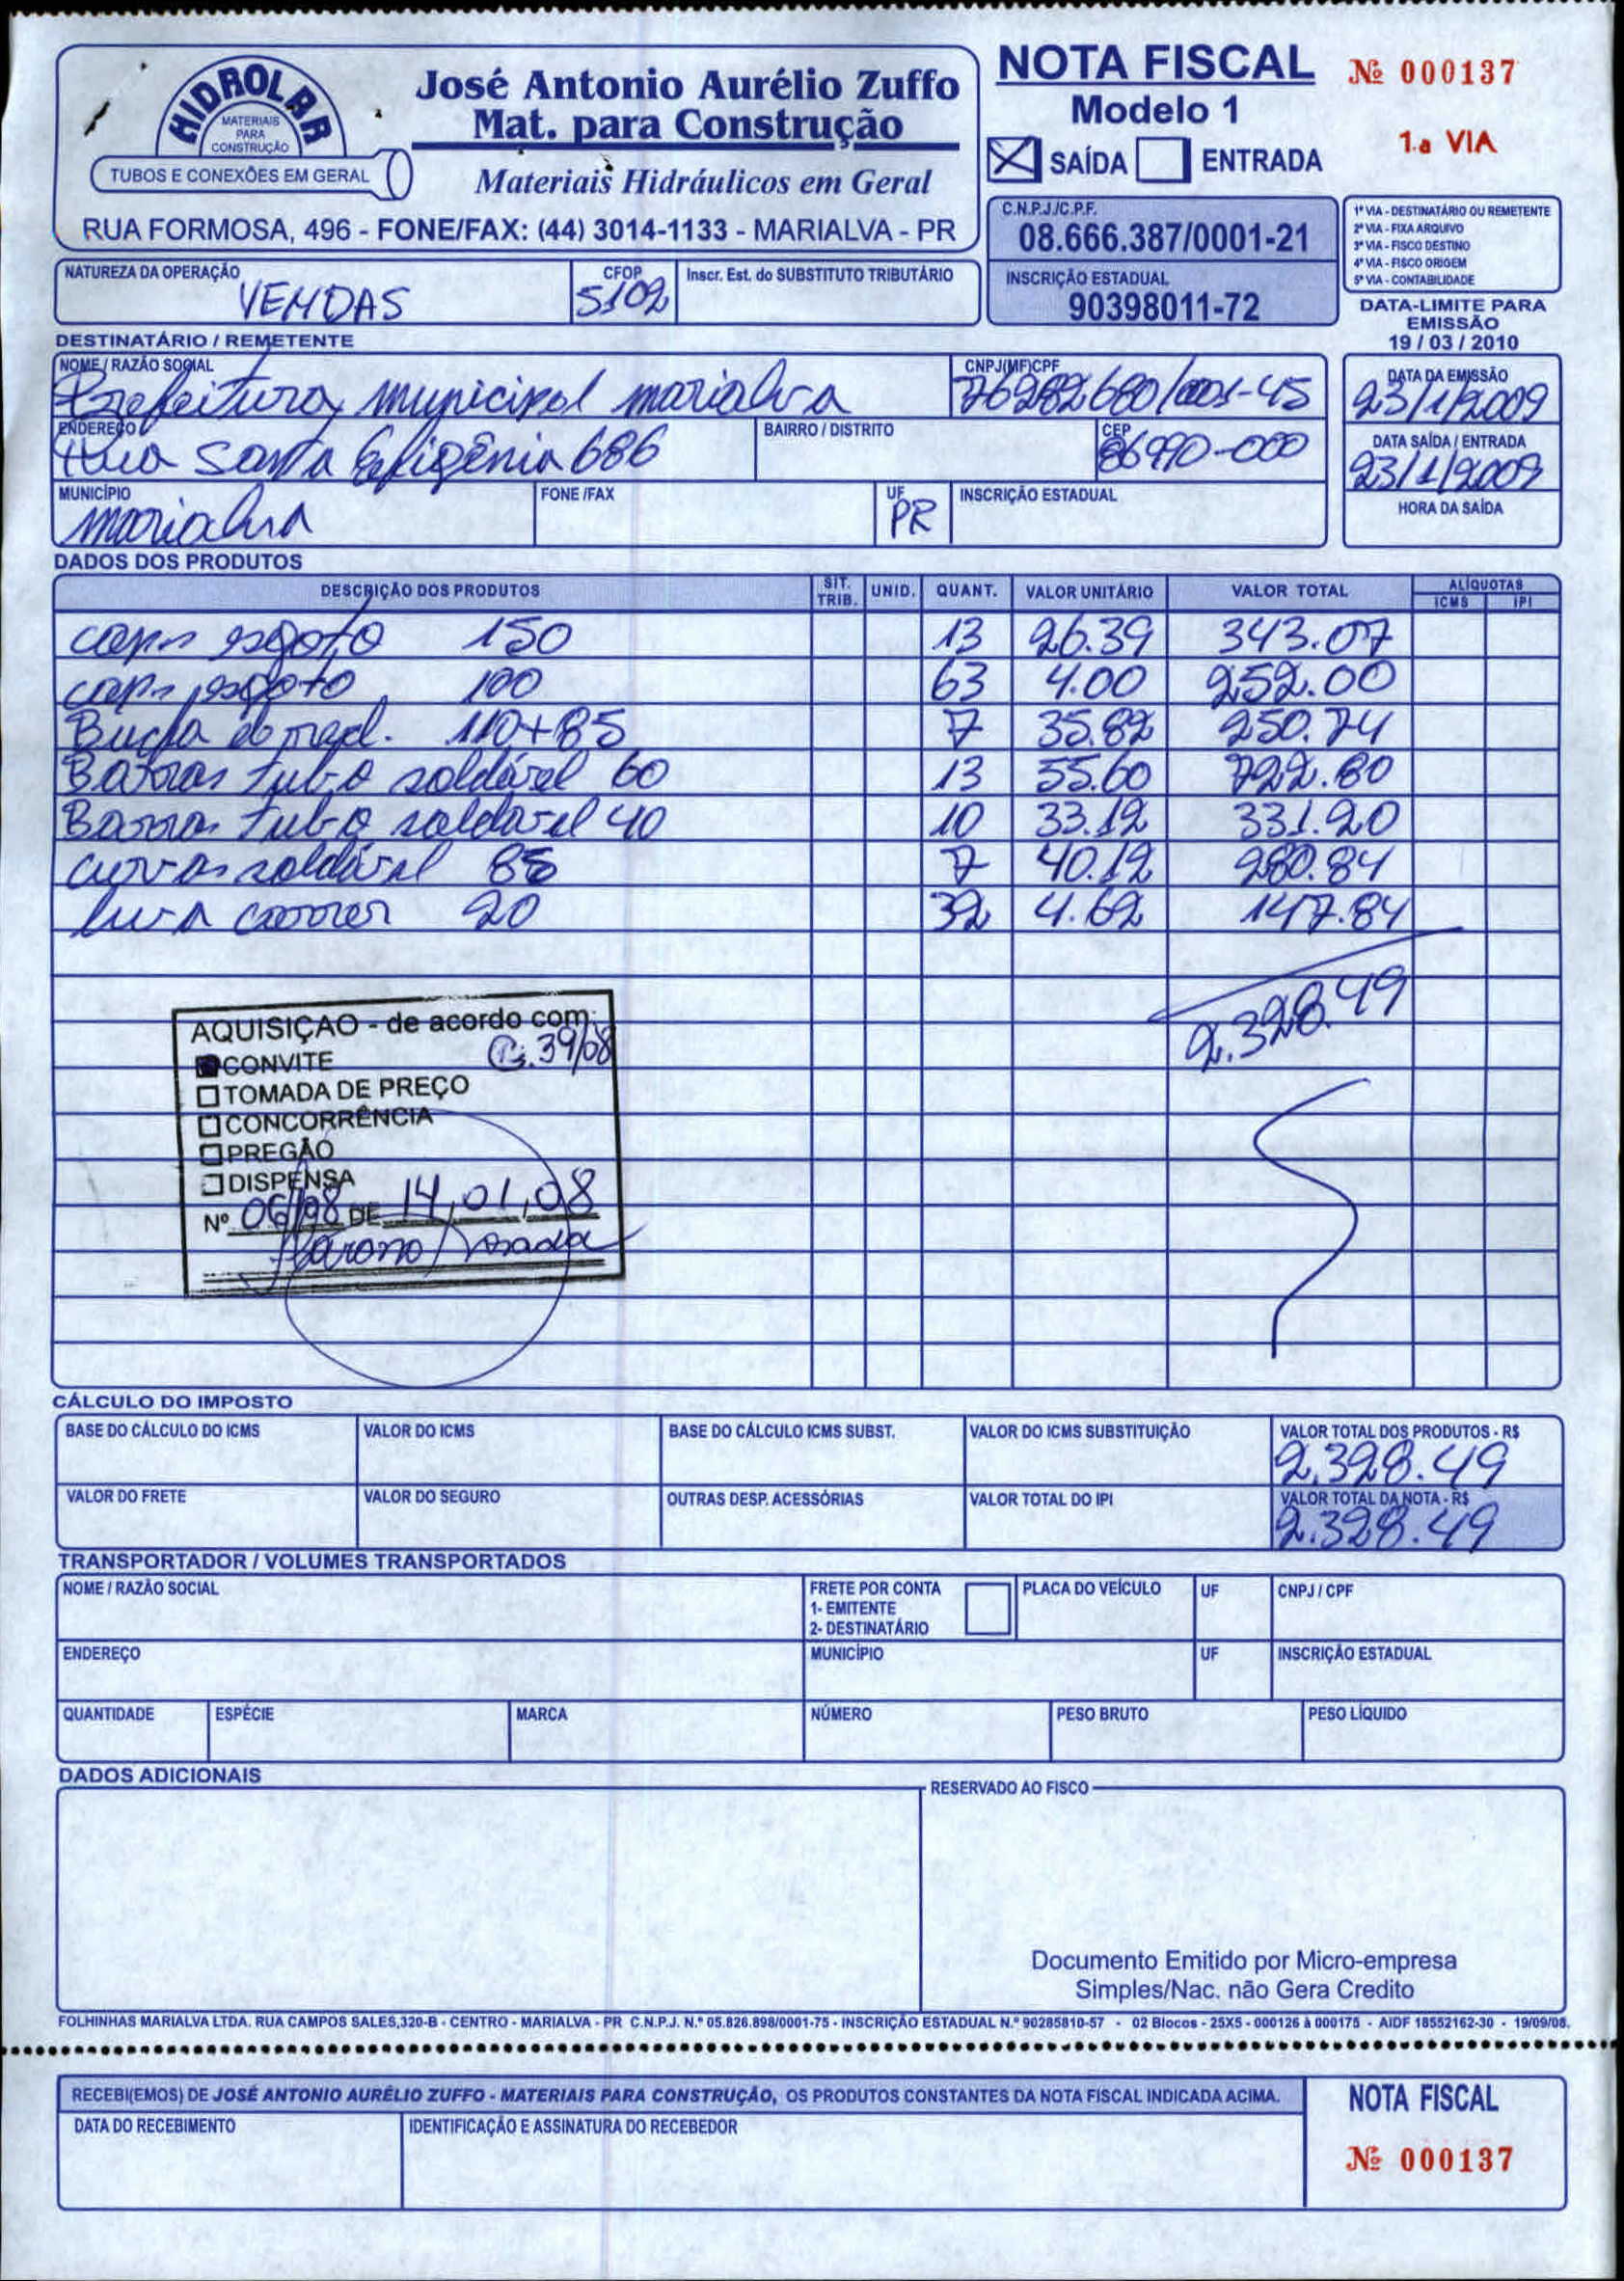 HIDROLAR
MATERIAIS
PARA
CONSTRUÇÃO
TUBOS E CONEXÕES EM GERAL
José Antonio Aurélio Zuffo
Mat. para Construção
Materiais Hidráulicos em Geral
RUA FORMOSA, 496 - FONE/FAX: (44) 3014-1133 - MARIALVA - PR
NOTA FISCAL Nº 000137
Modelo 1
1.a VIA
SAÍDA ENTRADA
C.N.P.J./C.P.F.
08.666.387/0001-21
INSCRIÇÃO ESTADUAL
90398011-72
1ª VIA - DESTINATÁRIO OU REMETENTE
2ª VIA - FIXA ARQUIVO
3ª VIA - FISCO DESTINO
4ª VIA - FISCO ORIGEM
5ª VIA - CONTABILIDADE
DATA-LIMITE PARA
EMISSÃO
19 / 03 / 2010
NATUREZA DA OPERAÇÃO CFOP Inscr. Est. do SUBSTITUTO TRIBUTÁRIO
VENDAS 5102
DESTINATÁRIO / REMETENTE
NOME / RAZÃO SOCIAL CNPJ(MF)CPF DATA DA EMISSÃO
Prefeitura municipal marialva 76282680/0001-45 23/1/2009
ENDEREÇO BAIRRO / DISTRITO CEP DATA SAÍDA / ENTRADA
Rua Santa Efigênia 686 86990-000 23/1/2009
MUNICÍPIO FONE /FAX UF INSCRIÇÃO ESTADUAL HORA DA SAÍDA
marialva PR
DADOS DOS PRODUTOS
DESCRIÇÃO DOS PRODUTOS SIT. TRIB. UNID. QUANT. VALOR UNITÁRIO VALOR TOTAL ALÍQUOTAS ICMS IPI
caps esgoto 150 13 26.39 343.07
caps esgoto 100 63 4.00 252.00
Bucha de red. 110+85 7 35.82 250.74
Barras tubo soldável 60 13 55.60 722.80
Barras tubo soldavel 40 10 33.12 331.20
curvas soldável 85 7 40.12 280.84
luva correr 20 32 4.62 147.84
2.328.49
AQUISIÇAO - de acordo com:
CONVITE C. 39/08
TOMADA DE PREÇO
CONCORRÊNCIA
PREGÃO
DISPENSA
Nº 06/98 DE 14,01,08
CÁLCULO DO IMPOSTO
BASE DO CÁLCULO DO ICMS VALOR DO ICMS BASE DO CÁLCULO ICMS SUBST. VALOR DO ICMS SUBSTITUIÇÃO VALOR TOTAL DOS PRODUTOS - R$
2.328.49
VALOR DO FRETE VALOR DO SEGURO OUTRAS DESP. ACESSÓRIAS VALOR TOTAL DO IPI VALOR TOTAL DA NOTA - R$
2.328.49
TRANSPORTADOR / VOLUMES TRANSPORTADOS
NOME / RAZÃO SOCIAL FRETE POR CONTA PLACA DO VEÍCULO UF CNPJ / CPF
1- EMITENTE
2- DESTINATÁRIO
ENDEREÇO MUNICÍPIO UF INSCRIÇÃO ESTADUAL
QUANTIDADE ESPÉCIE MARCA NÚMERO PESO BRUTO PESO LÍQUIDO
DADOS ADICIONAIS
RESERVADO AO FISCO
Documento Emitido por Micro-empresa
Simples/Nac. não Gera Credito
FOLHINHAS MARIALVA LTDA. RUA CAMPOS SALES,320-B - CENTRO - MARIALVA - PR C.N.P.J. N.º 05.826.898/0001-75 - INSCRIÇÃO ESTADUAL N.º 90285810-57 - 02 Blocos - 25X5 - 000126 à 000175 - AIDF 18552162-30 - 19/09/08.
RECEBI(EMOS) DE JOSÉ ANTONIO AURÉLIO ZUFFO - MATERIAIS PARA CONSTRUÇÃO, OS PRODUTOS CONSTANTES DA NOTA FISCAL INDICADA ACIMA.
DATA DO RECEBIMENTO IDENTIFICAÇÃO E ASSINATURA DO RECEBEDOR
NOTA FISCAL
Nº 000137